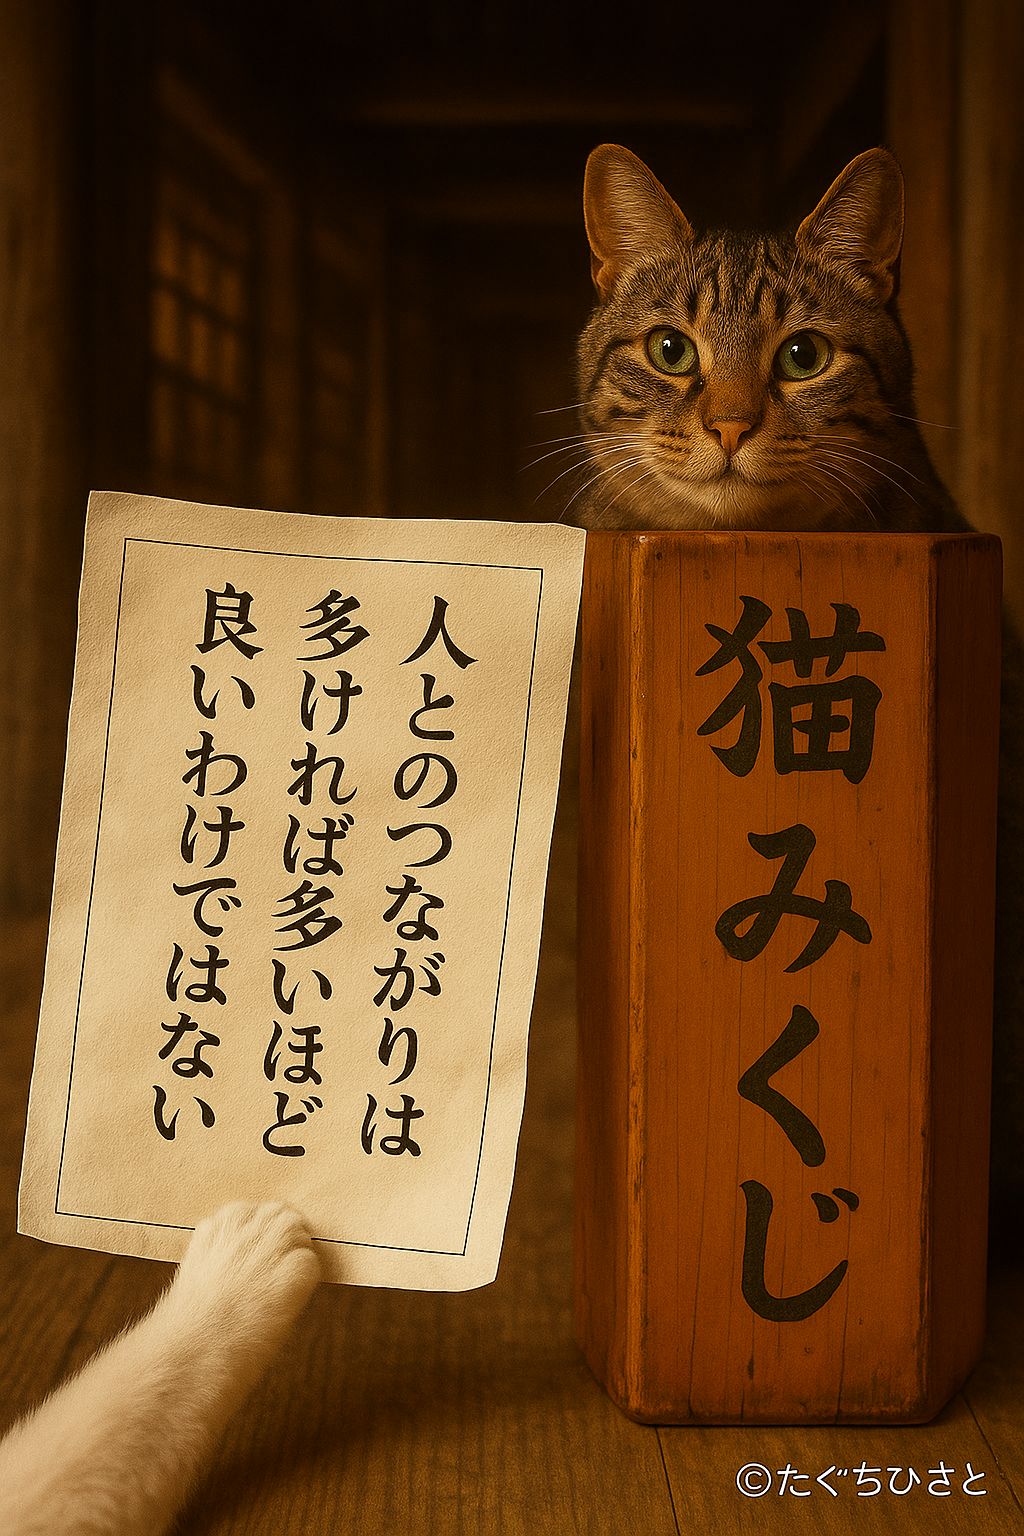 人とのつながりは
多ければ多いほど
良いわけではない
猫みくじ
©たぐちひさと